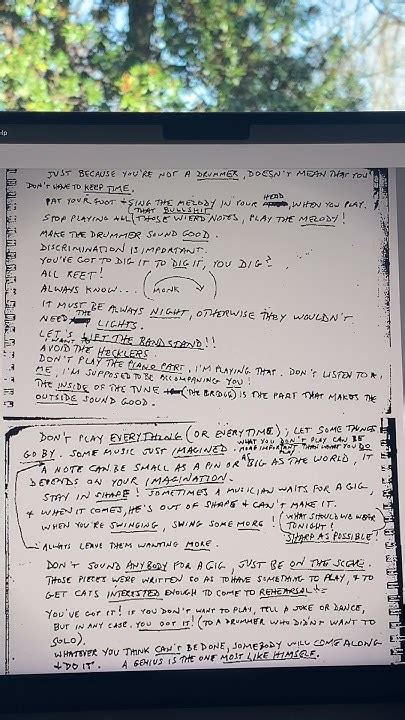 Help
JUST BECAUSE YOU'RE NOT A DRUMMER, DOESN'T MEAN THAT YOU
DON'T HAVE TO KEEP TIME.
PAT YOUR FOOT + SING THE MELODY IN YOUR HEAD, WHEN YOU PLAY.
STOP PLAYING ALL (THAT BULLSHIT) THOSE WIERD NOTES, PLAY THE MELODY!
MAKE THE DRUMMER SOUND GOOD.
DISCRIMINATION IS IMPORTANT.
YOU'VE GOT TO DIG IT TO DIG IT, YOU DIG?
ALL REET!
ALWAYS KNOW... MONK
IT MUST BE ALWAYS NIGHT, OTHERWISE THEY WOULDN'T
NEED THE LIGHTS.
LET'S LIFT THE BANDSTAND!!
I WANT TO AVOID THE HECKLERS.
DON'T PLAY THE PIANO PART, I'M PLAYING THAT. DON'T LISTEN TO
ME, I'M SUPPOSED TO BE ACCOMPANYING YOU!
THE INSIDE OF THE TUNE (THE BRIDGE) IS THE PART THAT MAKES THE
OUTSIDE SOUND GOOD.
DON'T PLAY EVERYTHING (OR EVERYTIME); LET SOME THINGS
GO BY. SOME MUSIC JUST IMAGINED. WHAT YOU DON'T PLAY CAN BE
MORE IMPORTANT THAN WHAT YOU DO PLAY
A NOTE CAN BE SMALL AS A PIN OR AS BIG AS THE WORLD, IT
DEPENDS ON YOUR IMAGINATION.
STAY IN SHAPE! SOMETIMES A MUSICIAN WAITS FOR A GIG,
+ WHEN IT COMES, HE'S OUT OF SHAPE + CAN'T MAKE IT.
WHEN YOU'RE SWINGING, SWING SOME MORE!
(WHAT SHOULD WE WEAR
TONIGHT?
SHARP AS POSSIBLE!
ALWAYS LEAVE THEM WANTING MORE.
DON'T SOUND ANYBODY FOR A GIG, JUST BE ON THE SCENE.
THOSE PIECES WERE WRITTEN SO AS TO HAVE SOMETHING TO PLAY, + TO
GET CATS INTERESTED ENOUGH TO COME TO REHEARSAL
YOU'VE GOT IT! IF YOU DON'T WANT TO PLAY, TELL A JOKE OR DANCE,
BUT IN ANY CASE, YOU GOT IT! (TO A DRUMMER WHO DIDN'T WANT TO
SOLO).
WHATEVER YOU THINK CAN'T BE DONE, SOMEBODY WILL COME ALONG
+ DO IT. A GENIUS IS THE ONE MOST LIKE HIMSELF.